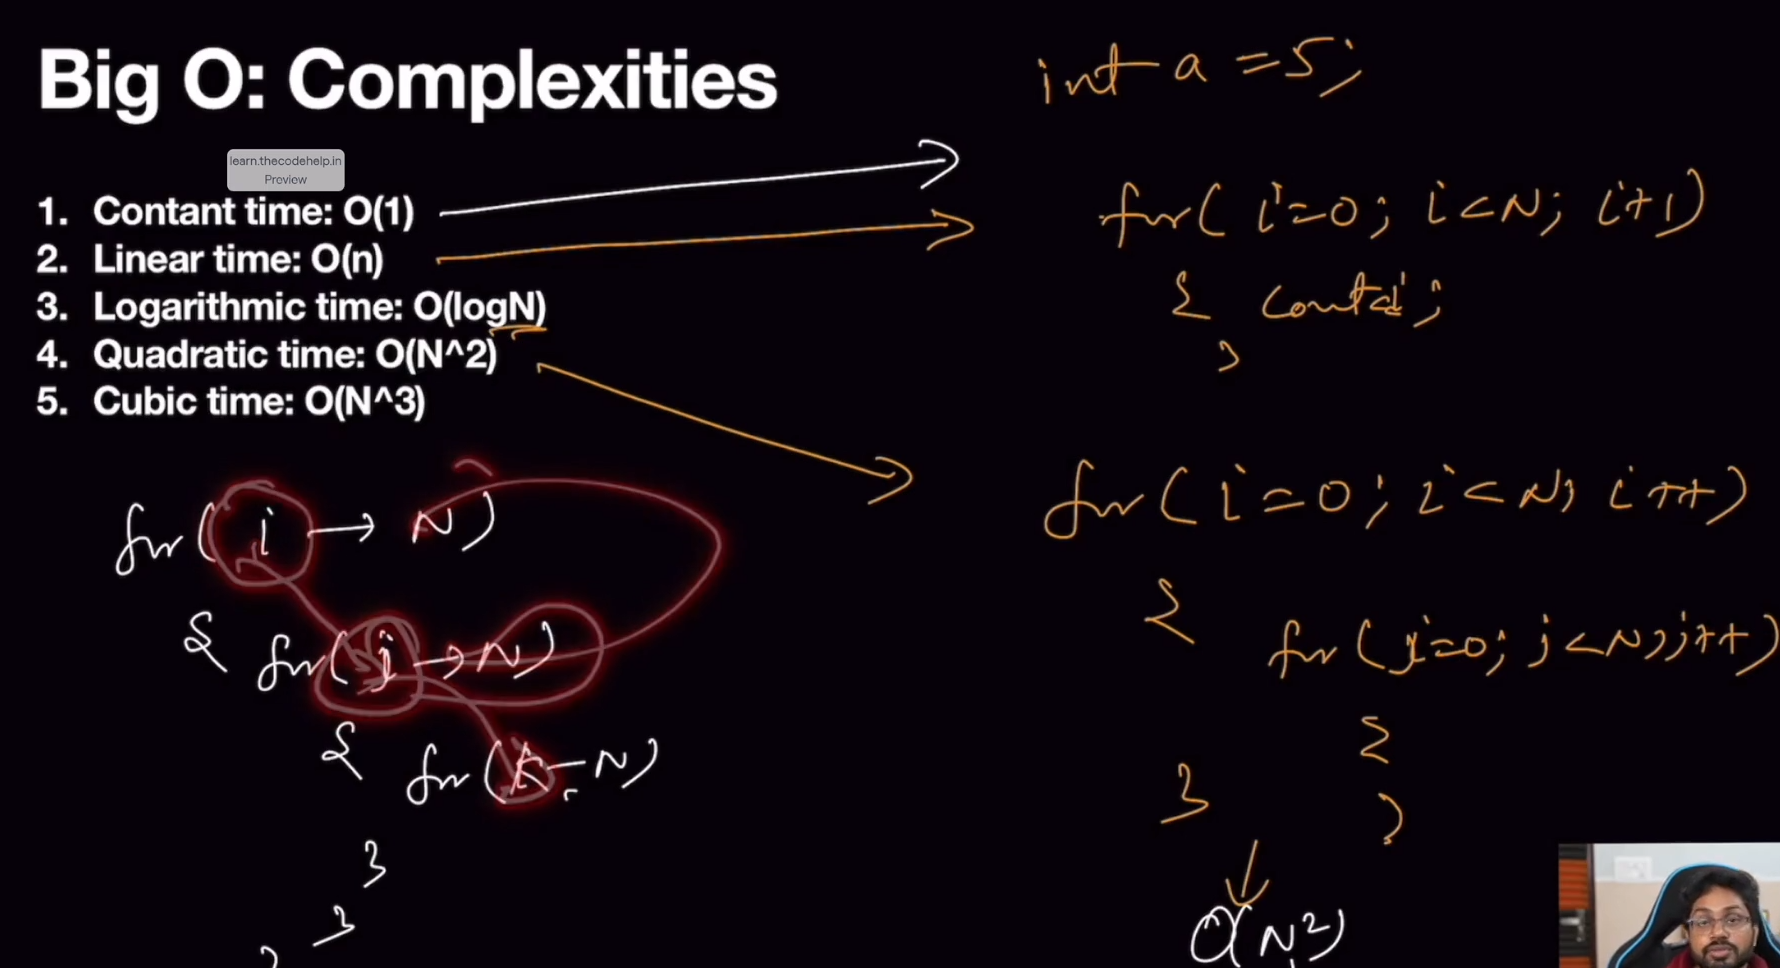 Big O: Complexities
learn.thecodehelp.in
Preview
1. Contant time: O(1)
2. Linear time: O(n)
3. Logarithmic time: O(logN)
4. Quadratic time: O(N^2)
5. Cubic time: O(N^3)
for( i → N)
{ for( j → N)
{ for(k – N)
}
}
int a = 5;
for( i=0; i<N; i+1)
{
}
for( i=0; i<N; i++)
{
for( j=0; j<N; j++)
{
}
}
↓
O(N²)